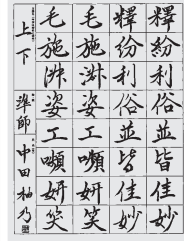 釋紛利俗並皆佳妙
釋紛利俗並皆佳妙
毛施淑姿工嚬妍笑
毛施淑姿工嚬妍笑
上下 準師 中田柚乃